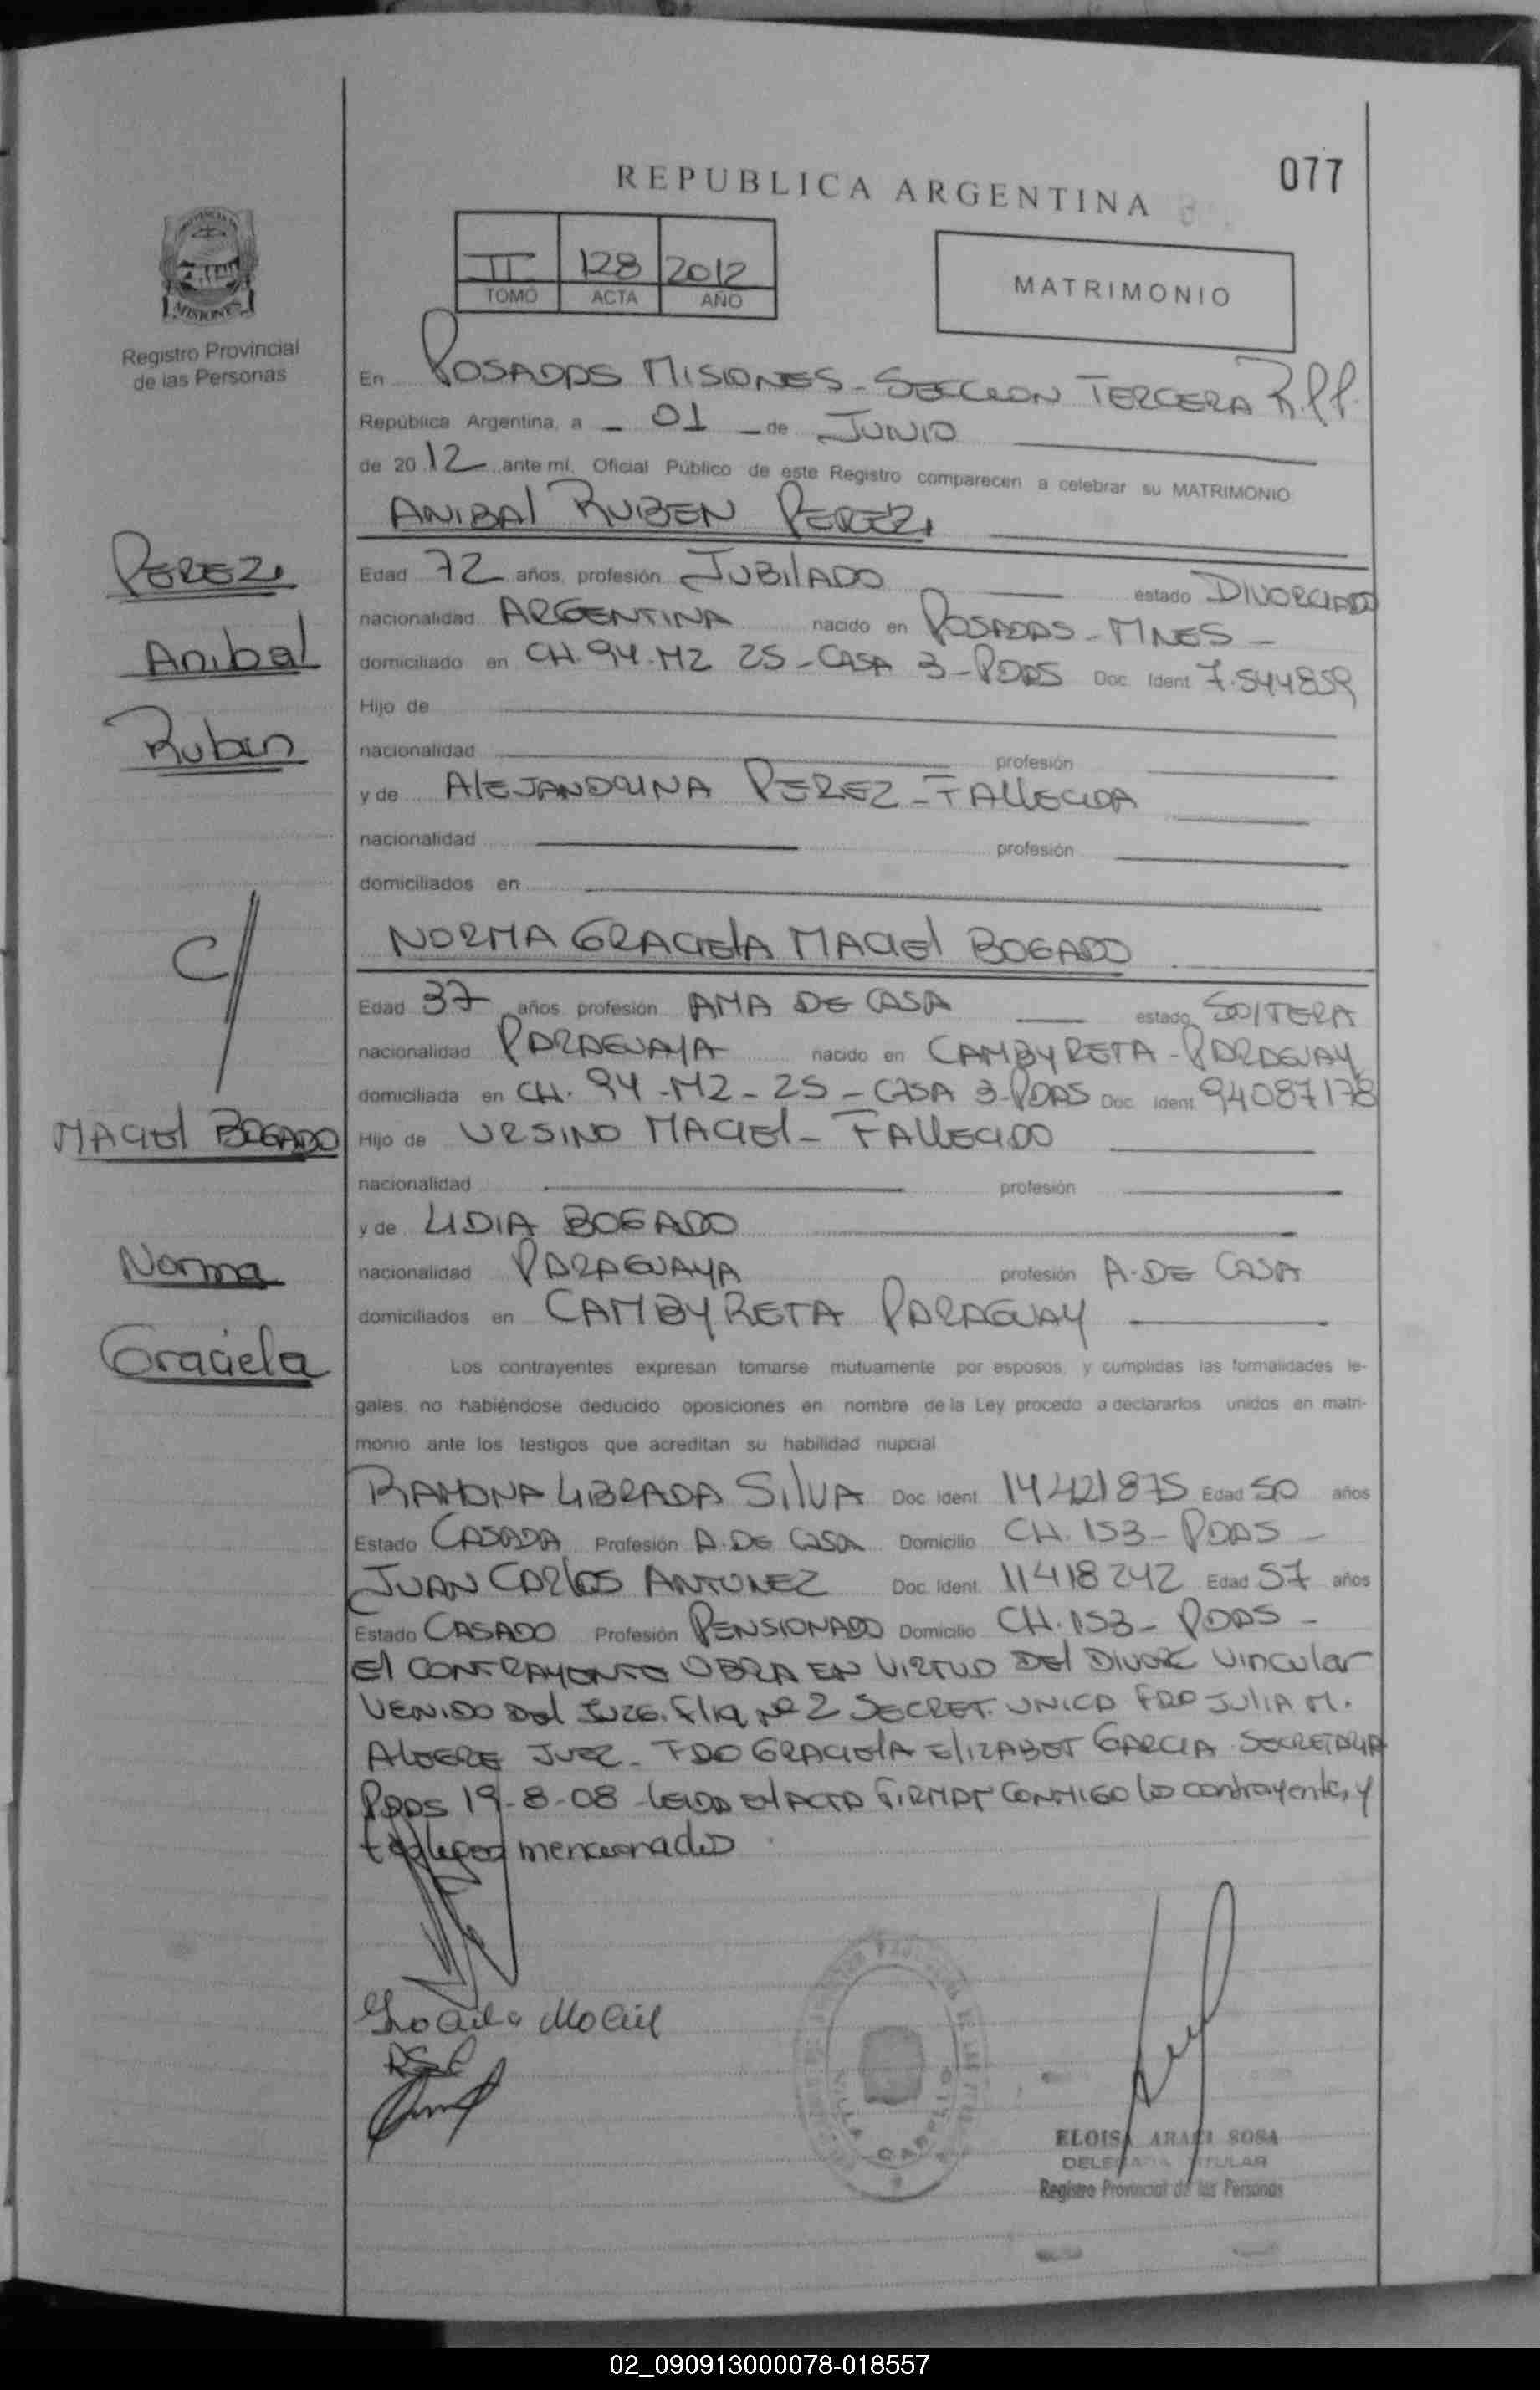 077
REPUBLICA ARGENTINA
II 128 2012
TOMO ACTA AÑO
MATRIMONIO
MISIONES
Registro Provincial
de las Personas
En POSADAS MISIONES - SECCION TERCERA R.P.P.
República Argentina, a - 01 - de JUNIO
de 2012 ante mí, Oficial Público de este Registro comparecen a celebrar su MATRIMONIO
ANIBAL RUBEN PEREZ
PEREZ
Anibal
Ruben
Edad 72 años, profesión JUBILADO estado DIVORCIADO
nacionalidad ARGENTINA nacido en POSADAS - MNES -
domiciliado en CH. 94 - MZ 25 - CASA 3 - PDAS Doc. Ident. 7.544859
Hijo de
nacionalidad profesión
y de ALEJANDRINA PEREZ - FALLECIDA
nacionalidad profesión
domiciliados en
C/
NORMA GRACIELA MACIEL BOGADO
Edad 37 años profesión AMA DE CASA estado SOLTERA
nacionalidad PARAGUAYA nacido en CAMBYRETA - PARAGUAY
domiciliada en CH. 94 - MZ - 25 - CASA 3 - PDAS Doc. Ident. 94087178
MACIEL BOGADO
Hijo de URSINO MACIEL - FALLECIDO
nacionalidad profesión
y de LIDIA BOGADO
Norma
nacionalidad PARAGUAYA profesión A. DE CASA
domiciliados en CAMBYRETA PARAGUAY
Graciela
Los contrayentes expresan tomarse mutuamente por esposos, y cumplidas las formalidades le-
gales, no habiéndose deducido oposiciones en nombre de la Ley procedo a declararlos unidos en matri-
monio ante los testigos que acreditan su habilidad nupcial
RAMONA LIBRADA SILVA Doc. Ident. 14421875 Edad 50 años
Estado CASADA Profesión A. DE CASA Domicilio CH. 153 - PDAS -
JUAN CARLOS ANTUNEZ Doc. Ident. 11418242 Edad 57 años
Estado CASADO Profesión PENSIONADO Domicilio CH. 153 - PDAS -
El CONTRAYENTE OBRA EN VIRTUD DEL DIVORC Vincular
VENIDO Del JUZG. Flia Nº 2 SECRET. UNICA FDO JULIA M.
ALEGRE JUEZ - FDO GRACIELA ELIZABET GARCIA SECRETARIA
PDAS 19-8-08 - LEIDA El ACTA FIRMAN CONMIGO los contrayentes y
testigos mencionados
Graciela Maciel
ELOISA ARACI SOSA
DELEGADA TITULAR
Registro Provincial de las Personas
02_090913000078-018557